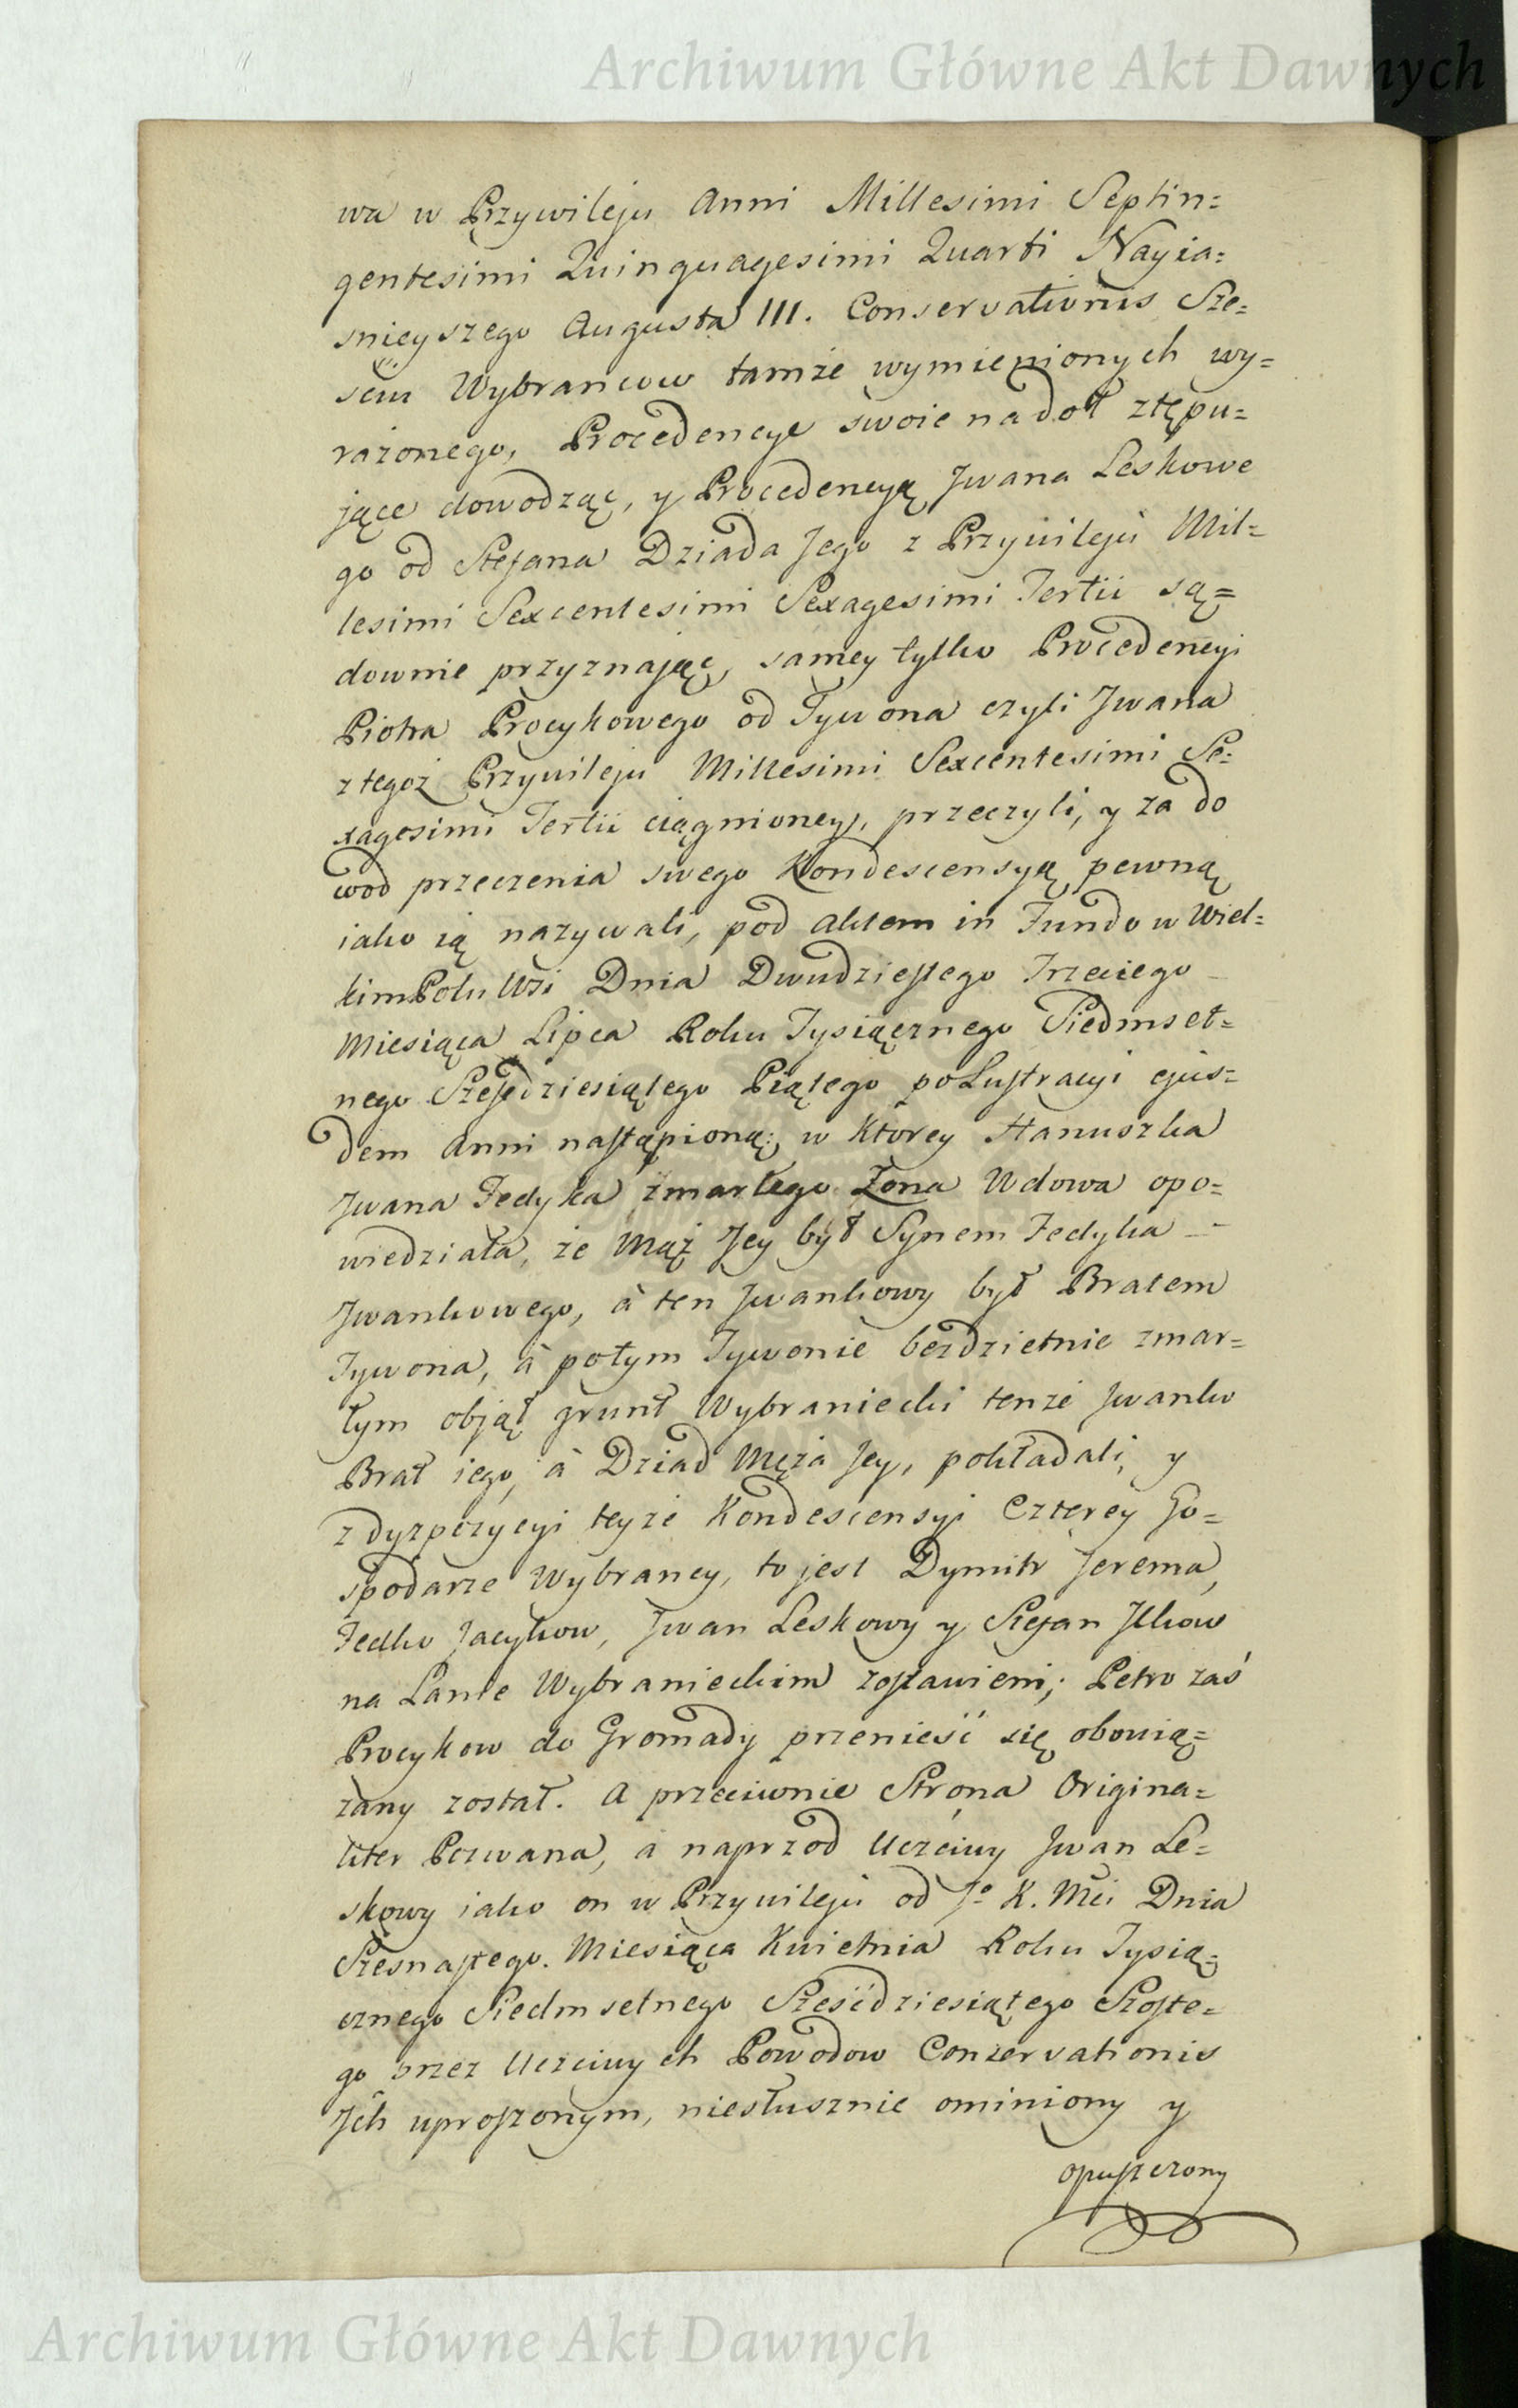 Archiwum Główne Akt Dawnych
wa w Przywileju Anni Millesimi Septin=
gentesimi Quinquagesimi Quarti Nayia=
snieyszego Augusta III. Conservationis Sze=
sciu Wybrancow tamże wymienionych wy=
rażonego, Procedencye swoie nadoł zstępu=
jące dowodząc, y Procedencyą Jwana Leskowe
go od Stefana Dziada Jego z Przywileju Mil=
lesimi Sexcentesimi Sexagesimi Tertii są=
downie przyznając, samey tylko Procedencyi
Piotra Procykowego od Tywona czyli Jwana
z tegoż Przywileju Millesimi Sexcentesimi Se=
xagesimi Tertii ciągnioney, przeczyli, y za do
wod przeczenia swego Kondescensyą pewną
iako ią nazywali, pod aktem in Fundo w Wiel=
kim Polu Wsi Dnia Dwudziestego Trzeciego
Miesiąca Lipca Roku Tysiącznego Siedmset=
nego Sześćdziesiątego Piątego po Lustracyi ejus=
dem Anni nastąpioną; w Ktorey Hanuszka
Jwana Fedyka zmarłego Żona Wdowa opo=
wiedziała, że Mąż Jey był Synem Fedyka
Jwankowego, à ten Jwankowy był Bratem
Tywona, à potym Tywonie bezdzietnie zmar=
łym objął grunt Wybraniecki tenże Jwanko
Brat iego, à Dziad Męża Jey, pokładali, y
z dyzpozycyi teyże Kondescensyi Czterey Go=
spodarze Wybrancy, to jest Dymitr Jerema,
Fedko Jacykow, Jwan Leskowy y Stefan Jlkow
na Łanie Wybranieckim zostawieni; Petro zaś
Procykow do Gromady przenieść się obowią=
zany został. A przeciwnie Strona Origina=
liter Pozwana, a naprzod Uczciwy Jwan Le=
skowy iako on w Przywileju od Jº K. Mci Dnia
Szesnastego Miesiąca Kwietnia Roku Tysią=
cznego Siedmsetnego Sześćdziesiątego Szoste=
go przez Uczciwych Powodow Conservationis
Jch uproszonym, niesłusznie ominiony y
opuszczony
Archiwum Główne Akt Dawnych